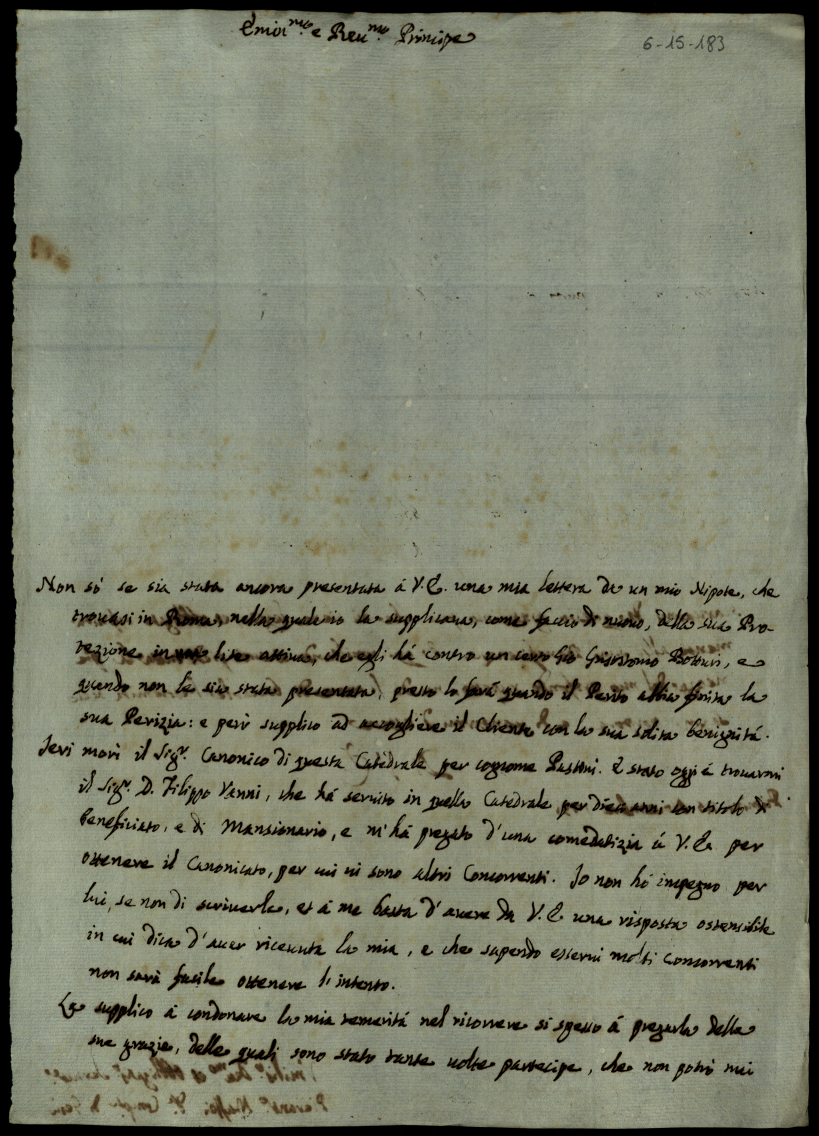 Emin.mo e Reu.mo Principe
6-15-183
Non só se sia stata ancora presentata á V.E. una mia lettera da un mio Nipote, che
trouasi in Roma, nella quale io la supplicaua, come faccio di nuouo, della sua Pro-
tezione in una lite attiua, che egli há contro un certo Gio Grisostomo Botturi, e
quando non le sia stata presentata, presto lo fará quando il Perito abbia finita la
sua Perizia: e però supplico ad accogliere il Cliente con la sua solita benignitá.
Jeri morì il Sig.r Canonico di questa Catedrale per cognome Pastini. È stato oggi á trouarmi
il Sig.r D. Filippo Vanni, che há seruito in quella Catedrale per dieci anni con titolo di
Beneficiato, e di Mansionario, e m'há pregato d'una comendatizia á V.E. per
ottenere il Canonicato, per cui ui sono altri Concorrenti. Jo non hó impegno per
lui, se non di scriuerla, et á me basta d'auere da V.E. una risposta ostensibile
in cui dica d'auer riceuuta la mia, e che sapendo esserui molti Concorrenti
non sará facile ottenere l'intento.
La supplico á condonare la mia temeritá nel ricorrere si spesso á pregarla della
sue grazie, delle quali sono stato tante uolte partecipe, che non potrò mai